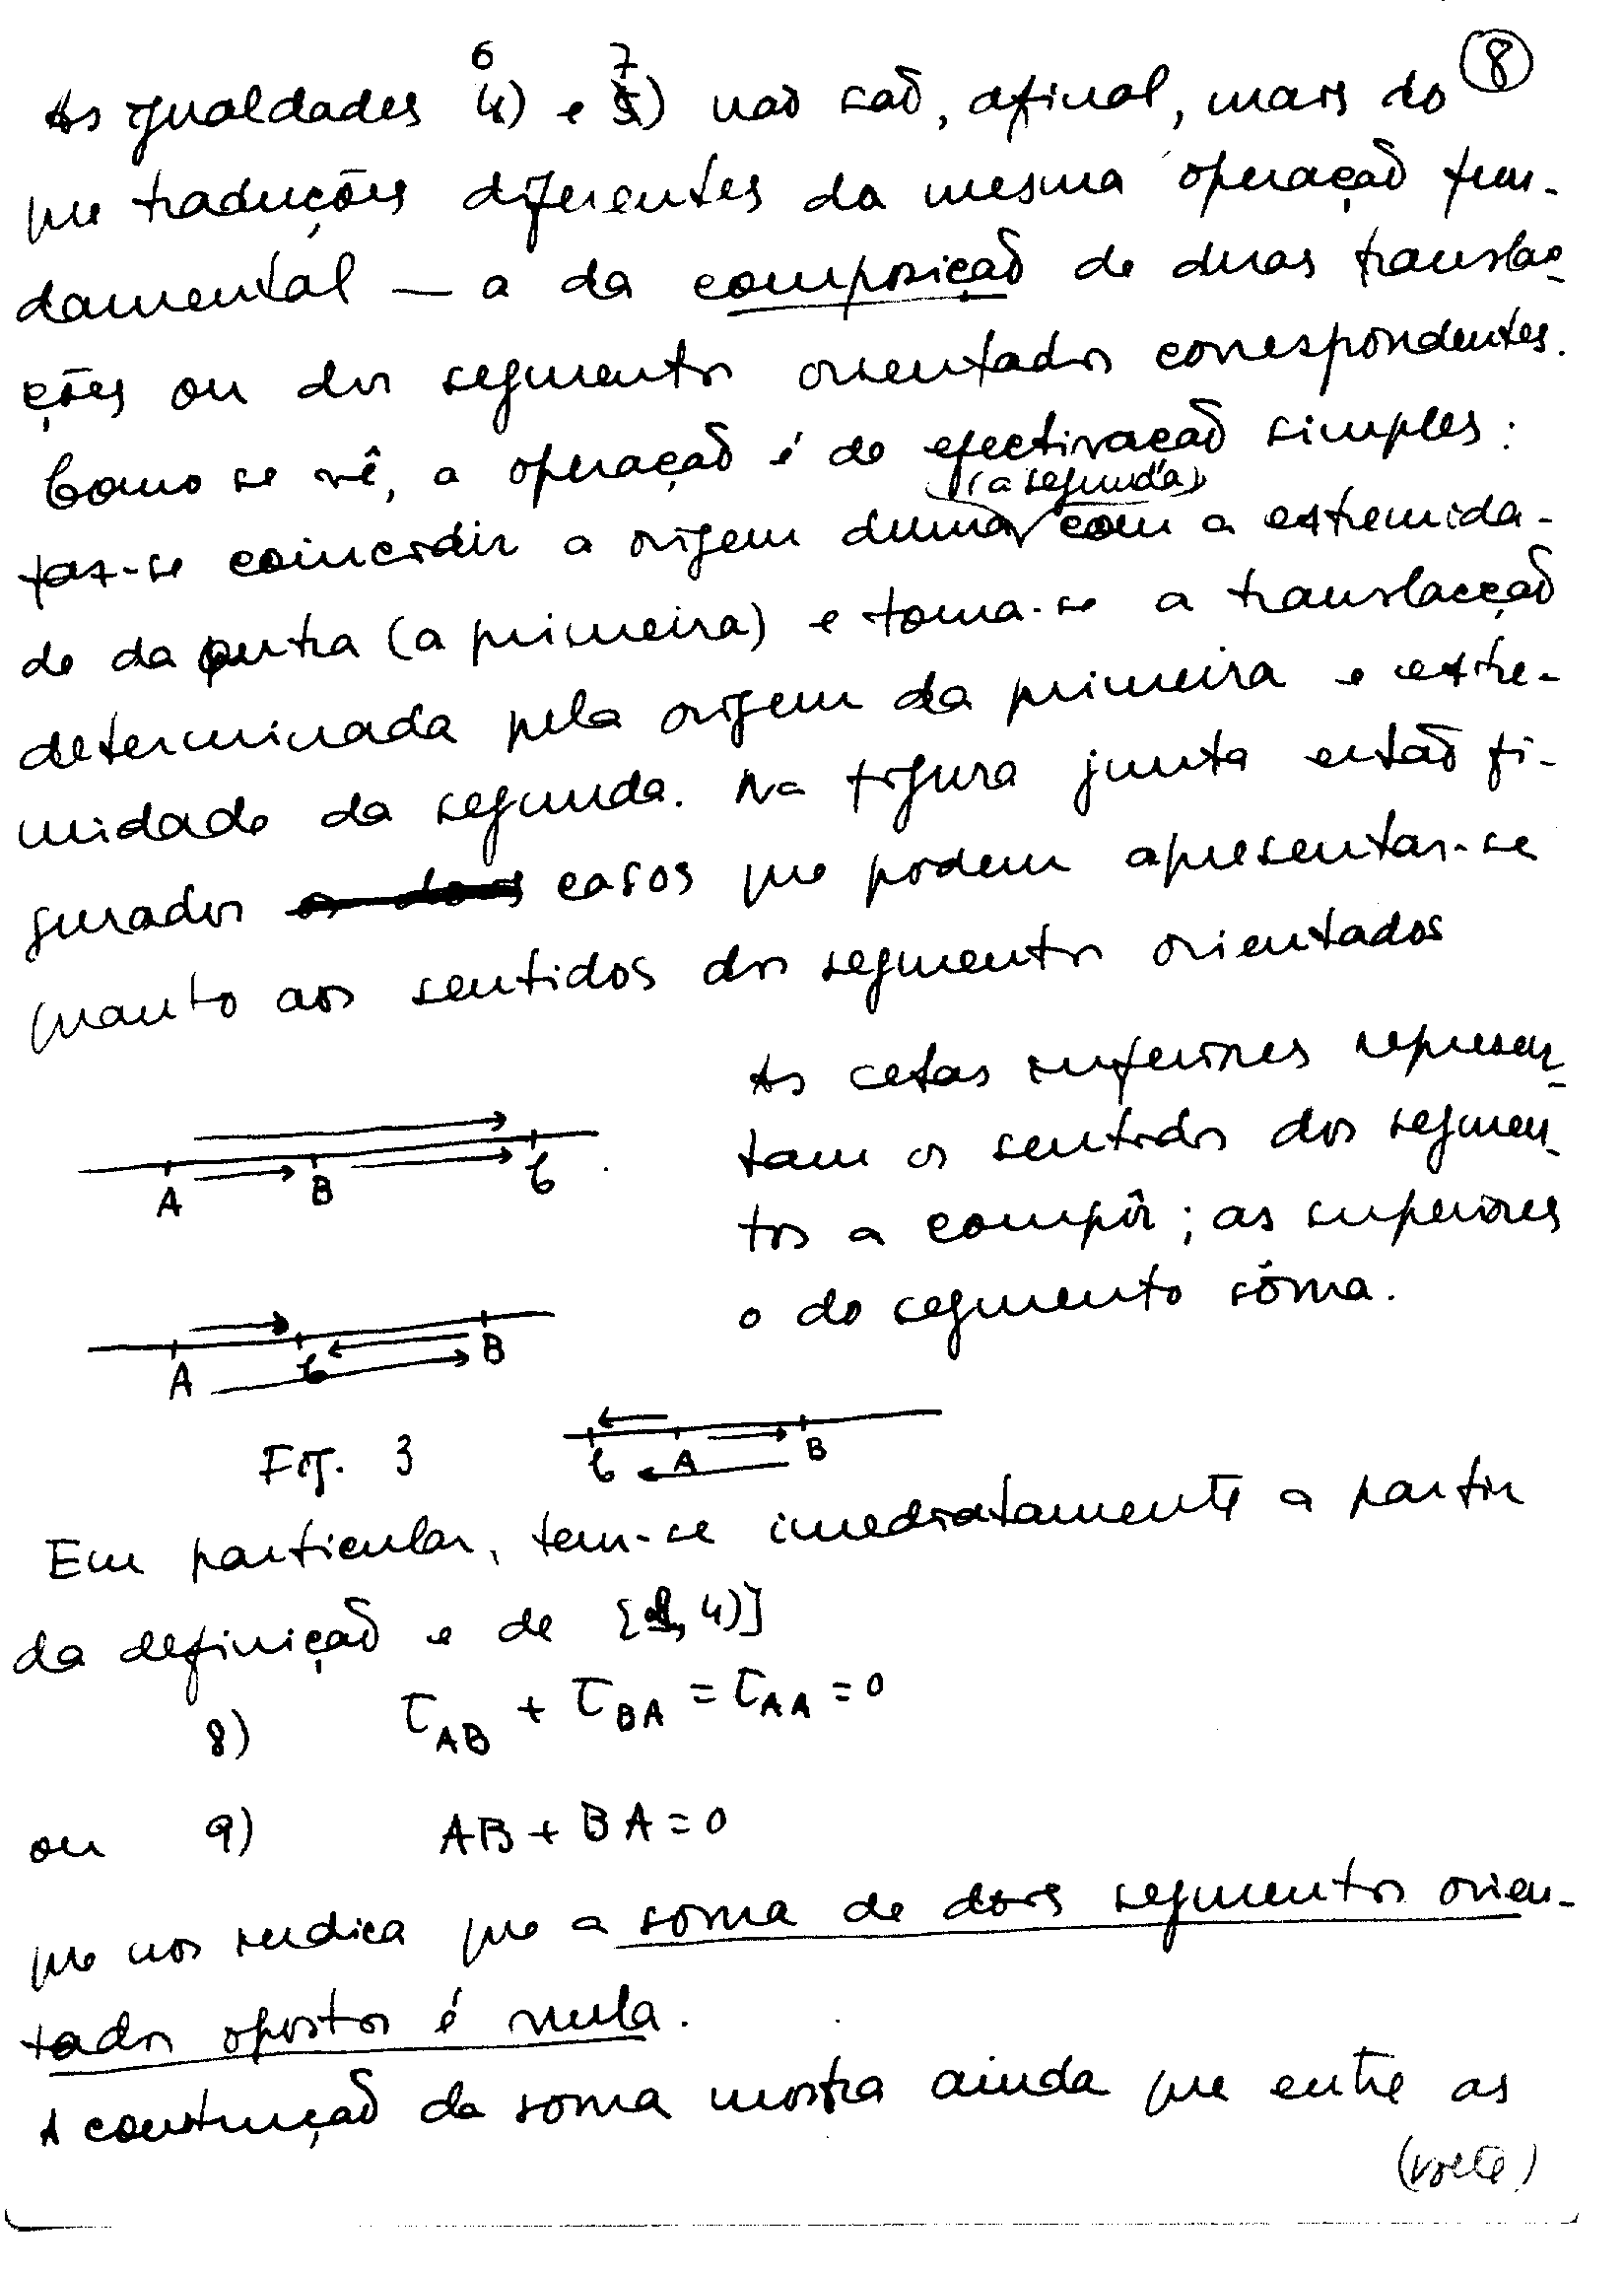 8
6 7
As igualdades 4) e 5) não são, afinal, mais do
que traduções diferentes da mesma operação fun-
damental — a da composição de duas transla-
ções ou dos segmentos orientados correspondentes.
Como se vê, a operação é de efectivação simples:
(a segunda)
faz-se coincidir a origem duma com a extremida-
de da outra (a primeira) e toma-se a translacção
determinada pela origem da primeira e extre-
midade da segunda. Na figura junta estão fi-
gurados os dois casos que podem apresentar-se
quanto aos sentidos dos segmentos orientados
As setas inferiores represen-
tam os sentidos dos segmen-
tos a compôr; as superiores
o do segmento sôma.
A B C
A C B
C A B
Fig. 3
Em particular, tem-se imediatamente a partir
da definição e de [ 4)]
8) τAB + τBA = τAA = 0
ou 9) AB + BA = 0
que nos indica que a soma de dois segmentos orien-
tados opostos é nula.
A construção da soma mostra ainda que entre as
(volte)